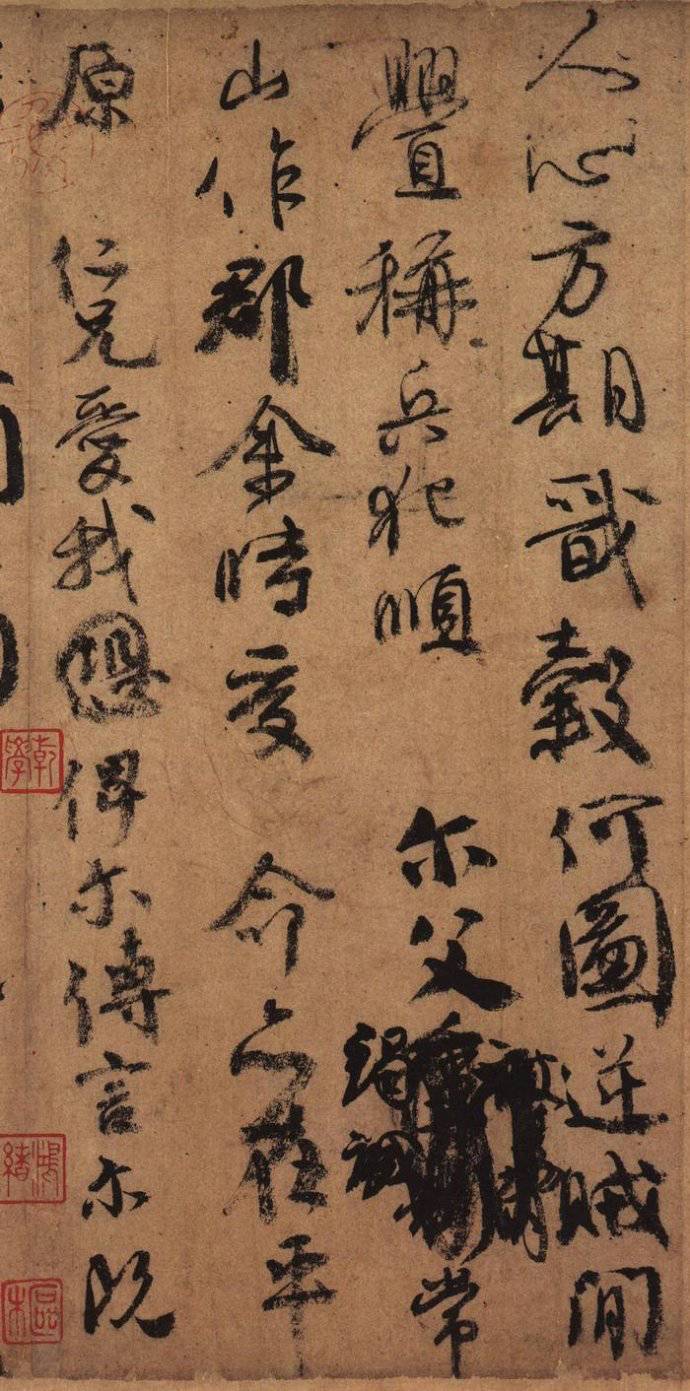 人心方期戩穀何圖逆賊間
釁稱兵犯順 尔父竭誠常
山作郡余時受 命亦在平
原 仁兄愛我恐俾尔傳言尔既
乾學
鴻緒